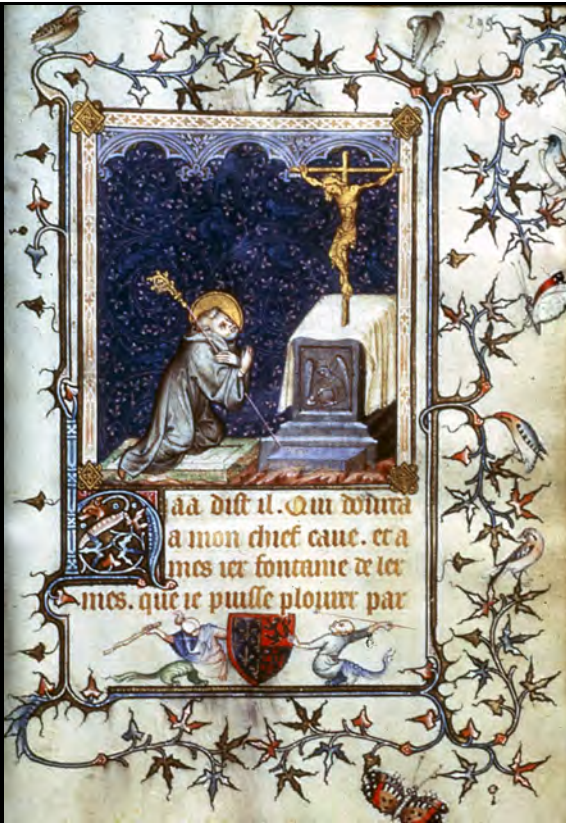 295
Haa dist il. Qui donrra
a mon chief eaue. et a
mes iex fontaine de ler
mes. que ie puisse plourer par